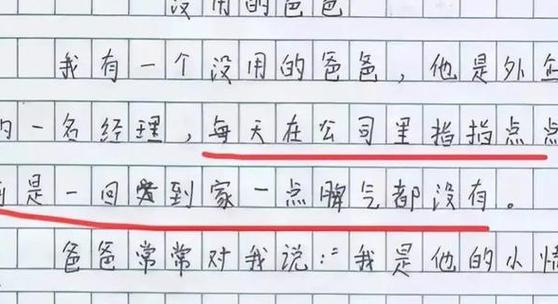 没用的爸爸
我有一个没用的爸爸，他是外企
的一名经理，每天在公司里指指点点
是一回到家一点脾气都没有。
爸爸常常对我说："我是他的小情